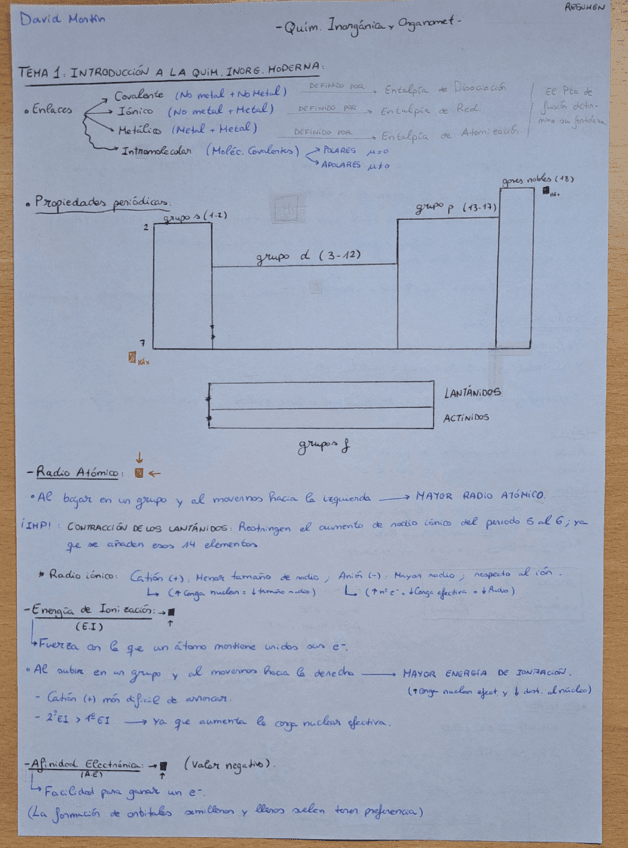 David Martín
RESUMEN
- Quím. Inorgánica y Organomet -
TEMA 1: INTRODUCCIÓN A LA QUÍM. INORG. MODERNA:
• Enlaces
Covalente (No metal + No Metal) DEFINIDO POR • Entalpía de Disociación
Iónico (No metal + Metal) DEFINIDO POR • Entalpía de Red.
Metálico (Metal + Metal) DEFINIDO POR • Entalpía de Atomización
El Pto de
fusión deter-
mina su fortaleza
Intramolecular (Moléc. Covalentes)
POLARES μ=0
APOLARES μ≠0
• Propiedades periódicas.
gases nobles (18)
Máx
grupo s (1-2)
grupo p (13-17)
2
grupo d (3-12)
7
Máx
LANTÁNIDOS
ACTÍNIDOS
grupos f
- Radio Atómico:
• Al bajar en un grupo y al movernos hacia la izquierda → MAYOR RADIO ATÓMICO.
¡IMP!: CONTRACCIÓN DE LOS LANTÁNIDOS: Restringen el aumento de radio iónico del periodo 5 al 6; ya
que se añaden esos 14 elementos
* Radio iónico: Catión (+). Menor tamaño de radio; Anión (-). Mayor radio; respecto al ión.
(↑Carga nuclear = ↓tamaño radio) (↑nº e⁻ = ↓Carga efectiva = ↓Radio)
- Energía de Ionización:
(E.I)
Fuerza con la que un átomo mantiene unidos sus e⁻.
• Al subir en un grupo y al movernos hacia la derecha → MAYOR ENERGÍA DE IONIZACIÓN.
(↑Carga nuclear efect. y ↓ dist. al núcleo)
- Catión (+) más difícil de arrancar.
- 2ªEI > 1ªEI → ya que aumenta la carga nuclear efectiva.
- Afinidad Electrónica: (Valor negativo).
(A.E)
Facilidad para ganar un e⁻.
(La formación de orbitales semillenos y llenos suelen tener preferencia)